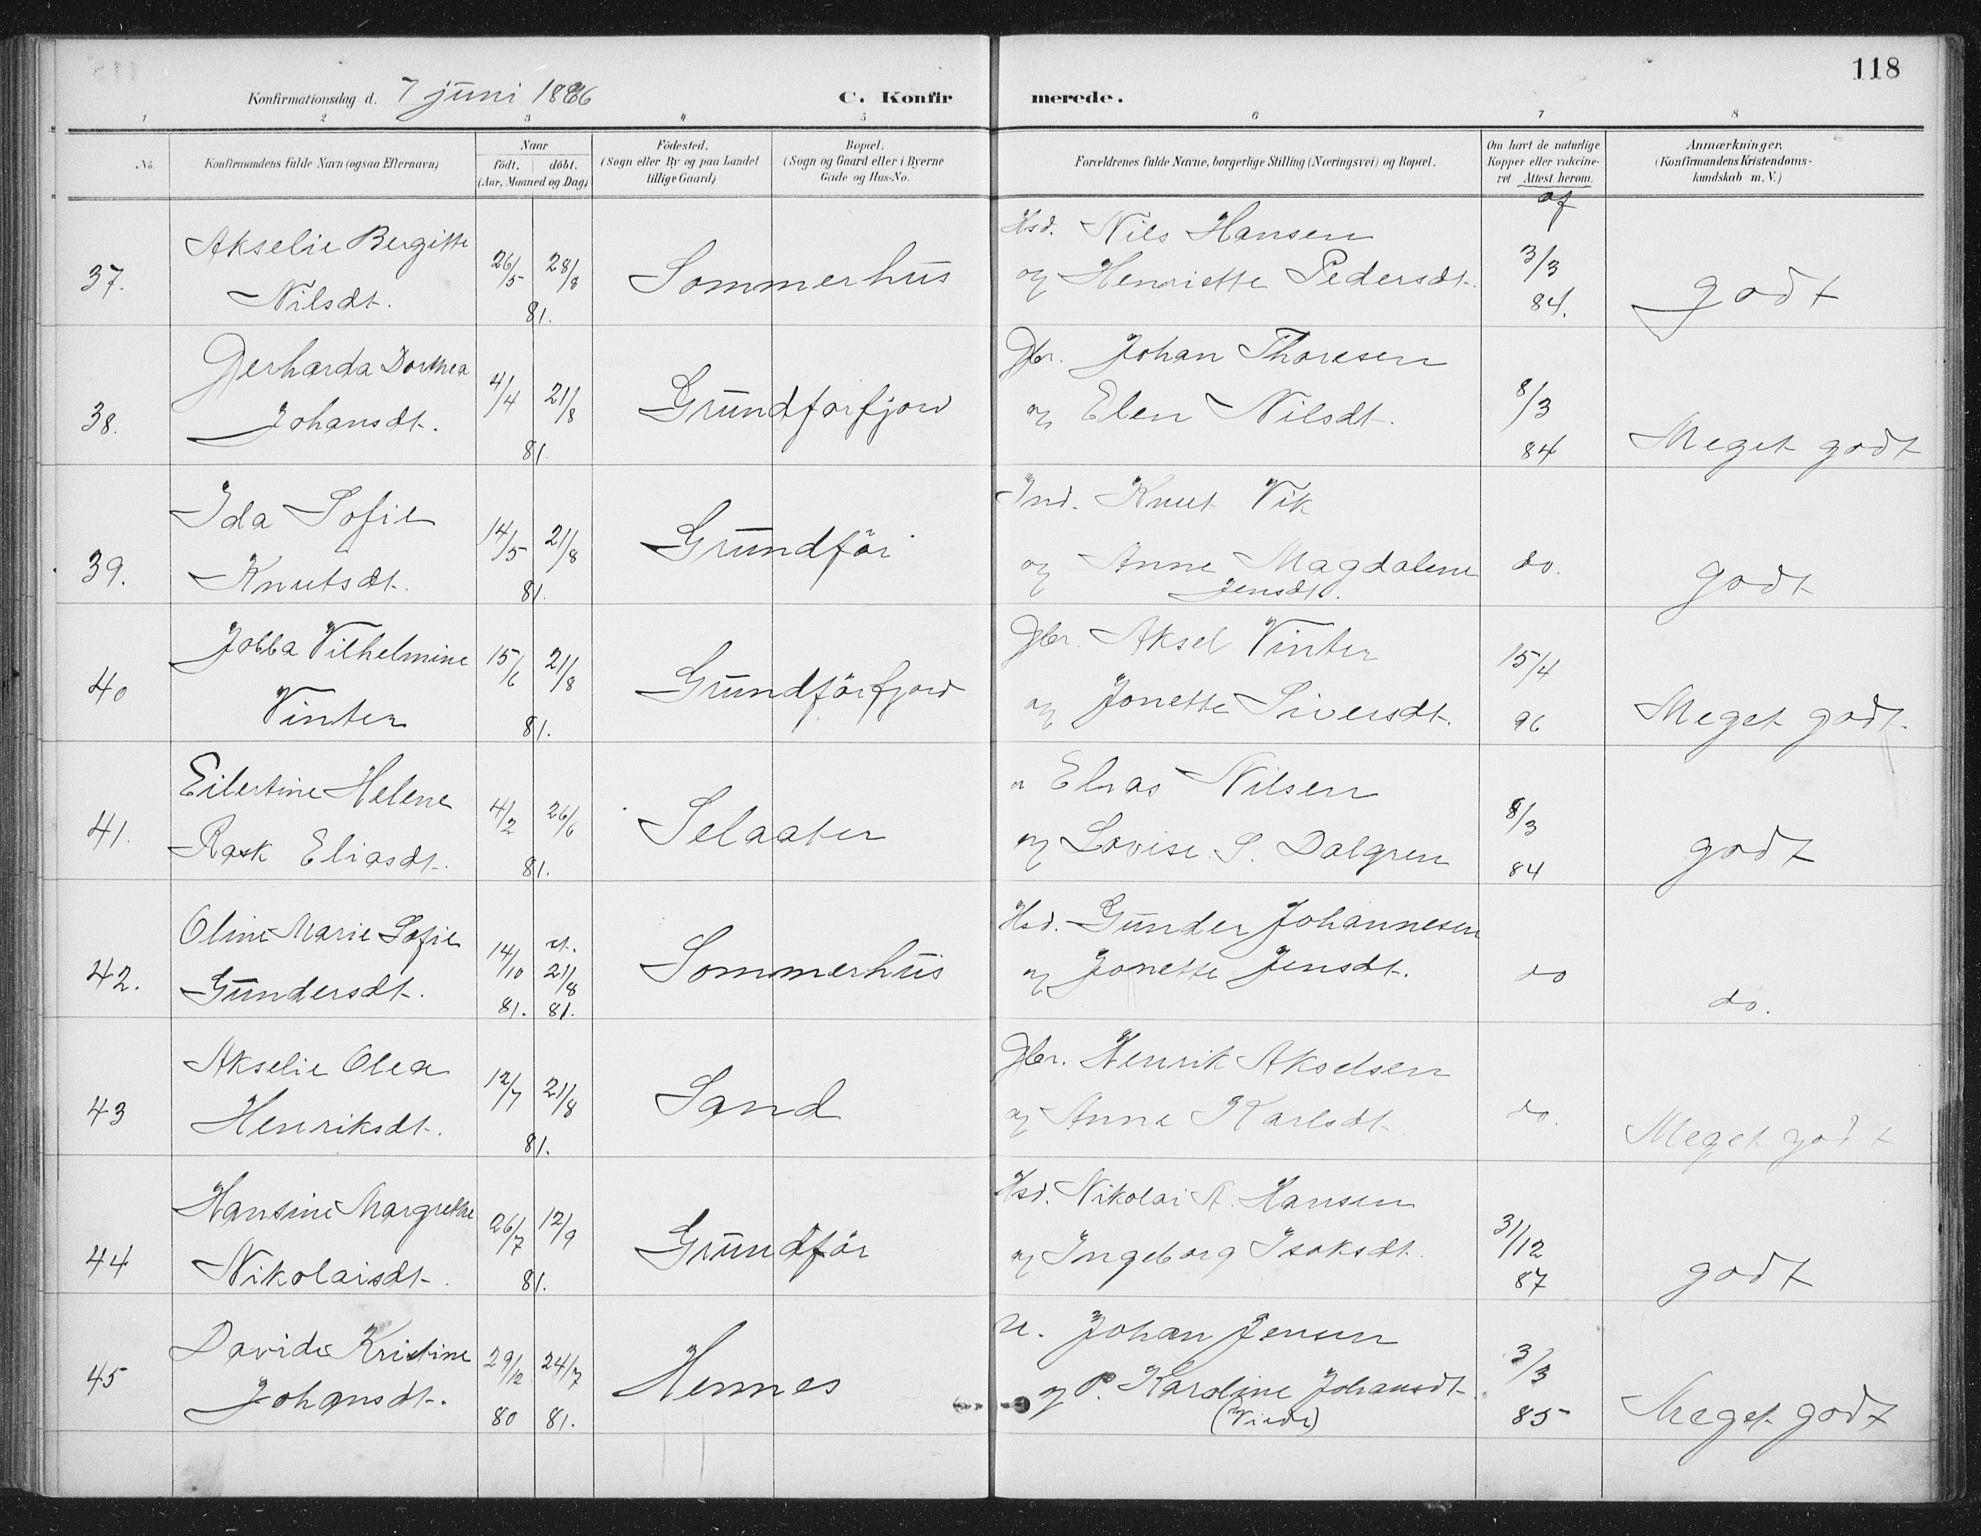 118
Konfirmationsdag d. 7 juni 1896
C. Konfirmerede.
1 2 3 4 5 6 7 8
No.
Konfirmandens fulde Navn (ogsaa Efternavn)
Naar
födt. döbt.
(Aar, Maaned og Dag)
Födested.
(Sogn eller By og paa Landet
tillige Gaard)
Bopæl.
(Sogn og Gaard eller i Byerne
Gade og Hus-No.
Forældrenes fulde Navne, borgerlige Stilling (Næringsvei) og Bopæl.
Om havt de naturlige
Kopper eller vakcine-
ret Attest herom.
Anmærkninger.
(Konfirmandens Kristendoms-
kundskab m. V.)
af
37. Akselie Bergitte
Nilsdt.
26/5 28/8
81.
Sommerhus
Hsd. Nils Hansen
og Henriette Pedersdt.
3/3
84.
godt
38. Gerharda Dorthea
Johansdt.
4/4 21/8
81.
Grundforfjord
Gbr. Johan Thoresen
og Elen Nilsdt.
8/3
84
Meget godt
39. Ida Sofie
Knutsdt.
14/5 21/8
81.
Grundför
Ind. Knut Vik
og Anne Magdalene
Jensdt.
do.
godt
40 Jobba Vilhelmine
Vinter
15/6 21/8
81.
Grundförfjord
Gbr. Aksel Vinter
og Jonette Siversdt.
15/4
96
Meget godt.
41. Eilertine Helene
Rask Eliasdt.
4/2 26/6
81.
Selaater
Elias Nilsen
og Lovise S. Dalgren
8/3
84
godt
42. Oline Marie Sofie
Gundersdt.
14/10 21/8
81. 81.
Sommerhus
Hsd. Gunder Johannesen
og Jonette Jensdt.
do
do.
43 Akselie Olea
Henriksdt.
12/7 21/8
81.
Sand
Gbr. Henrik Akselsen
og Anne Karlsdt.
do.
Meget godt
44 Hansine Margrethe
Nikolaisdt.
26/7 12/9
81.
Grundför
Hsd. Nikolai A. Hansen
og Ingeborg Isaksdt.
31/12
87
godt
45 Davide Kristine
Johansdt.
29/12 24/7
80 81.
Hennes
u. Johan Jensen
og P. Karoline Johansdt.
3/3
85
Meget godt